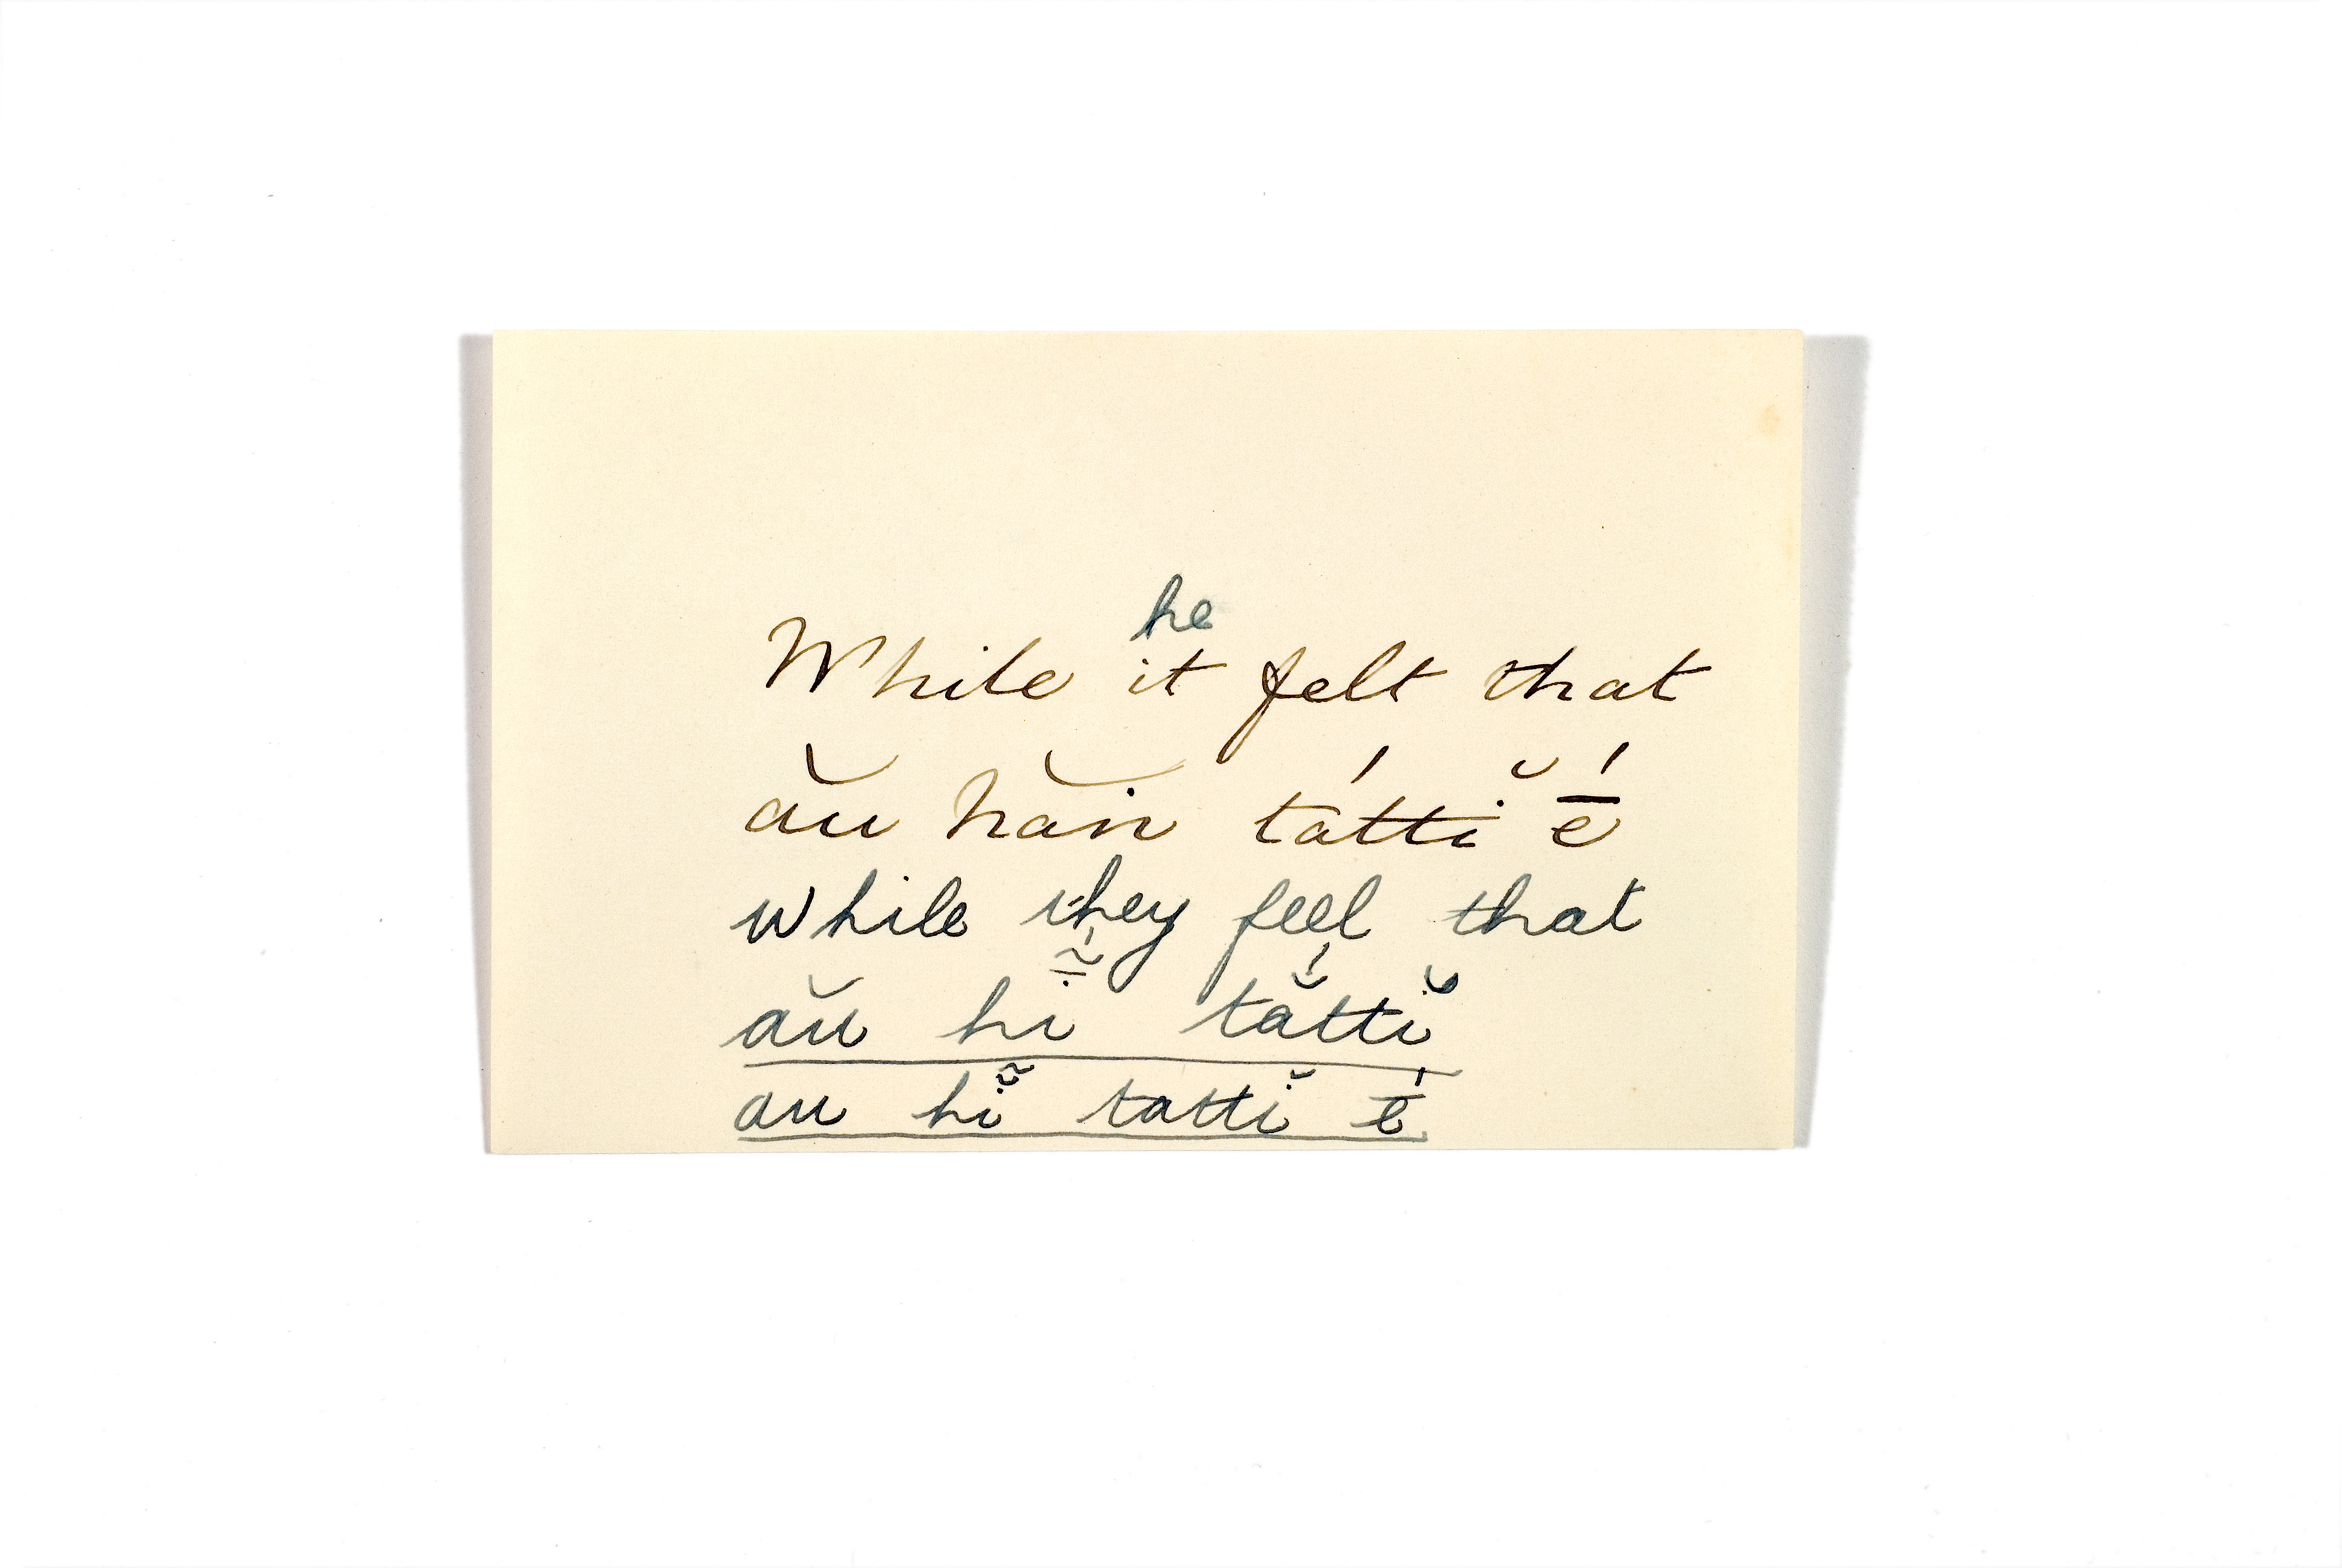 he
While it felt that
ău hăin táttĭ ḗ
while they feel that
ău hĩ́ tắttĭ
au hĩ̆ tattĭ ḗ